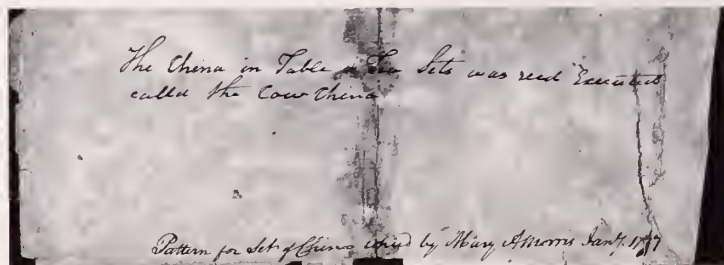 The China in Table & Tea Sets was reed Executed
called the Cow China
Pattern for Set of China copied by Mary A Morris Jany. 17